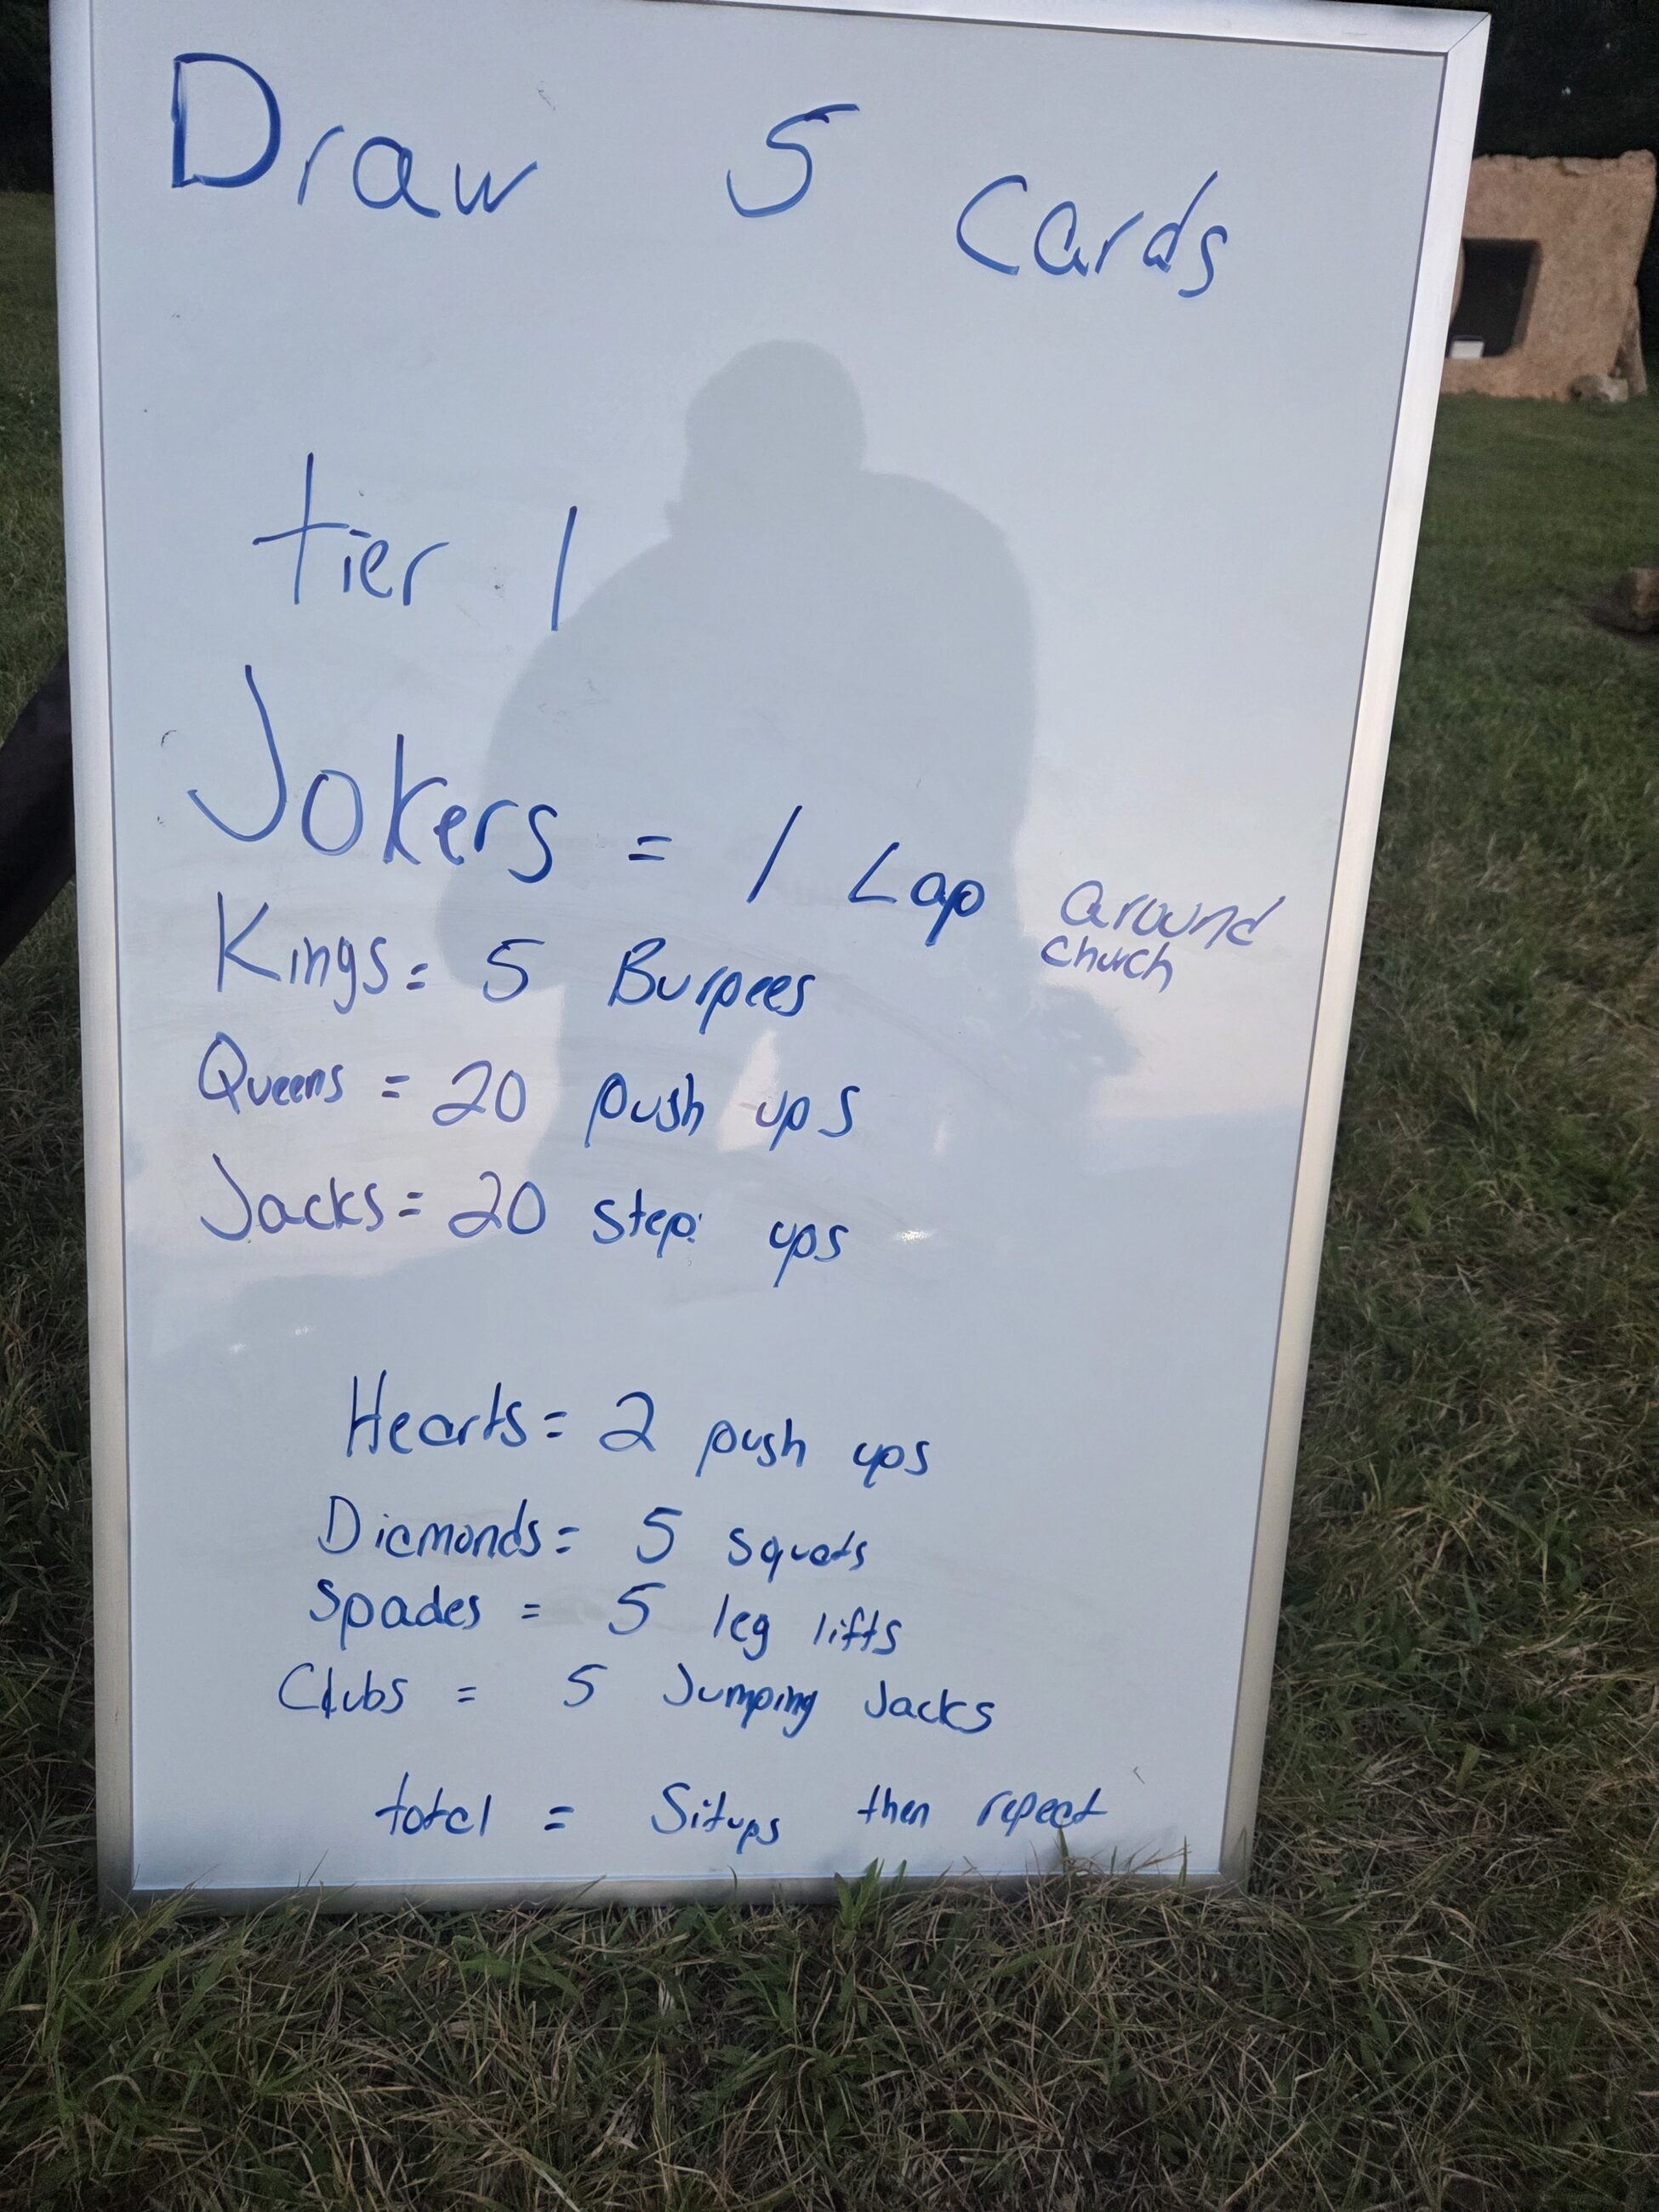 Draw 5 Cards
tier 1
Jokers = 1 Lap around
church
Kings = 5 Burpees
Queens = 20 push ups
Jacks = 20 step ups
Hearts = 2 push ups
Diamonds = 5 squats
Spades = 5 leg lifts
Clubs = 5 Jumping Jacks
total = Situps then repeat